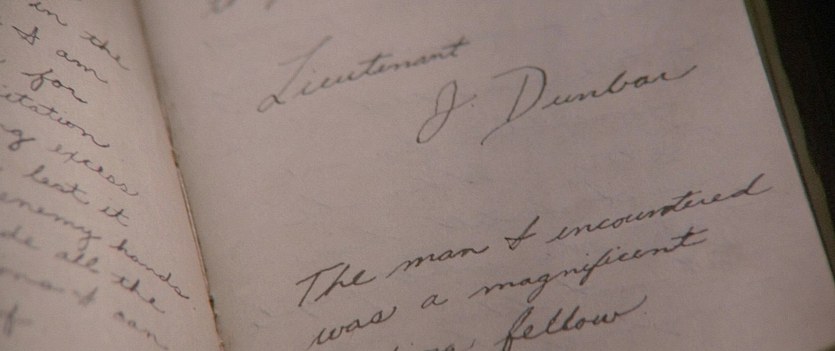 in the
I am
for
excess
lest it
enemy hands
all the
Lieutenant
J. Dunbar
The man I encountered
was a magnificent
fellow